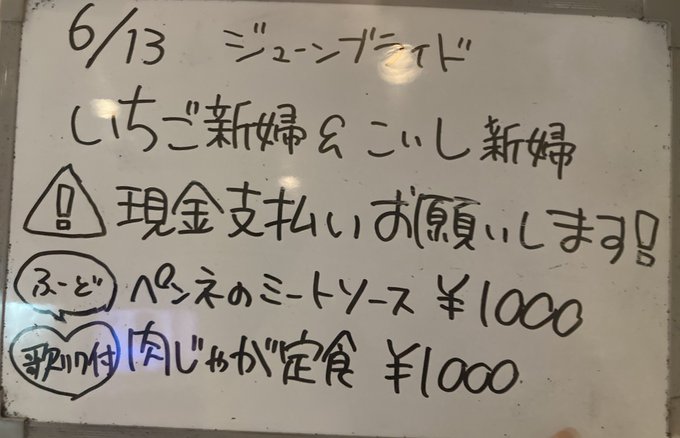 6/13 ジューンブライド
いちご新婦&こいし新婦
! 現金支払いお願いします!
ふーど ペンネのミートソース ¥1000
肉じゃが定食 ¥1000